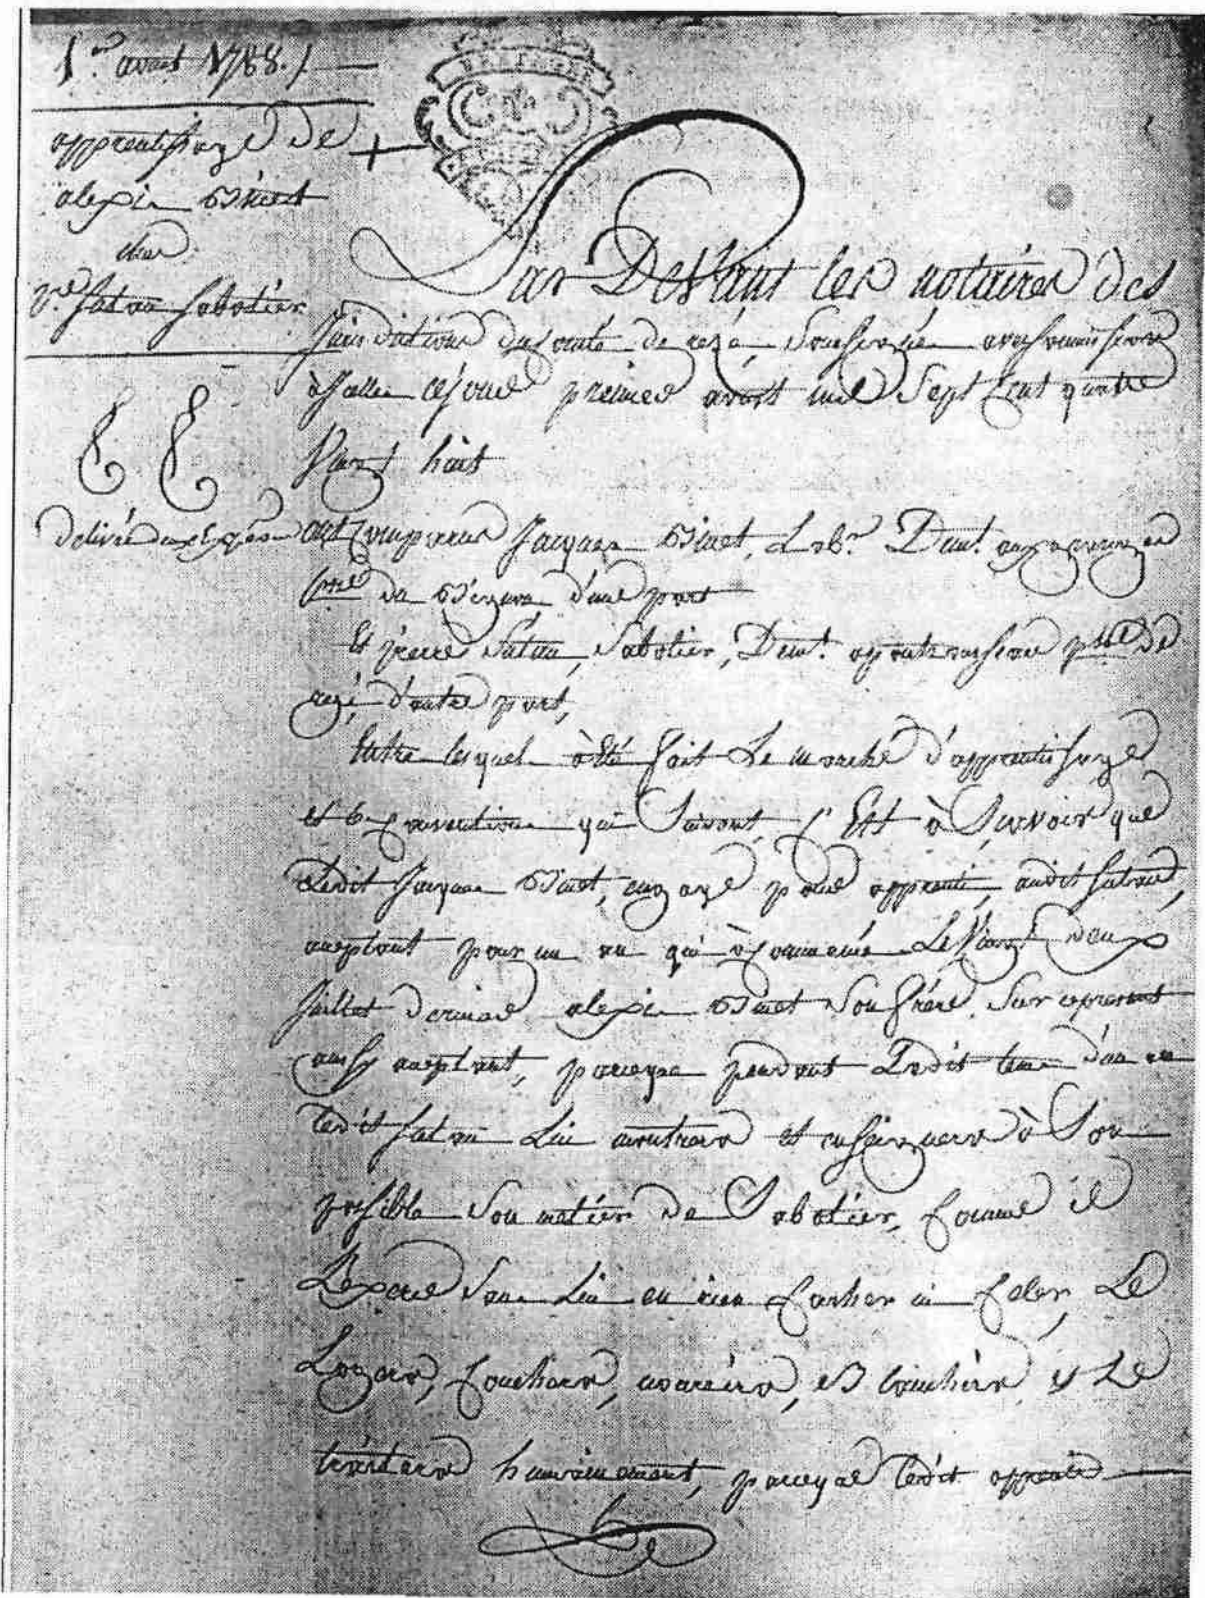 1er avout 1788./.
apprentissage de
alexis Binet
chez
pre fatou sabotier
delivré deux Exp
Par Devant les notaires des
Juridictions du comté de rezé, Soussignés avec soumission
à celles ce jour premier avout mil Sept Cent quatre
Vingt huit
ont Comparus Jacques Binet, Labr. Dem.t
psse de d'une part
Et pierre fatou, Sabotier, Dem.t psse de
rezé, d'autre part,
Entre lesquels à Eté fait Le marché d'apprentissage
et Conventions qui Suivent, C'Est à Sçavoir que
Ledit Jacques Binet, engage pour apprenti, audit fatou,
acceptant pour un an qui à Commencé Le Vingt deux
Juillet dernier alexis Binet Son frère, Sur ce present
aussy acceptant, parceque pendant Ledit tems d'un an
ledit fatou Lui montrera et enseignera à Son
possible Son métier de Sabotier, Comme il
L'exerce Sans Lui en rien Cacher ni Celer, Le
Logera, Couchera, nourrira, Blanchira et Le
traitera humainement, parceque ledit apprenti